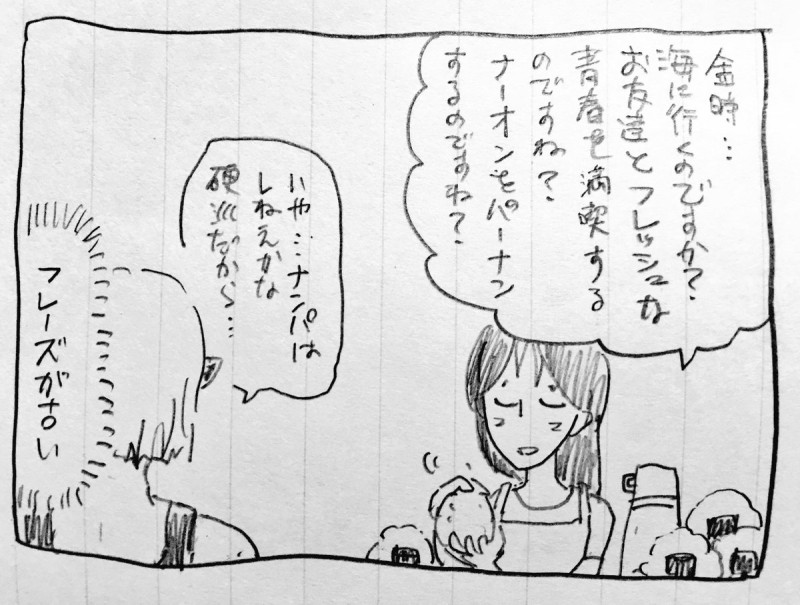 金時…
海に行くのですか?
お友達とフレッシュな
青春を満喫する
のですね?
ナーオンをパーナン
するのですね?
いや…ナンパは
しねえかな
硬派だから…
フレーズが古い